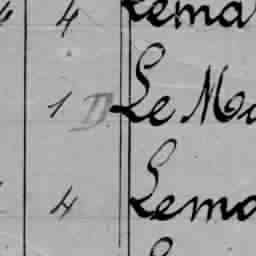 4 4 Lema
1 D Le Ma
4 Lema